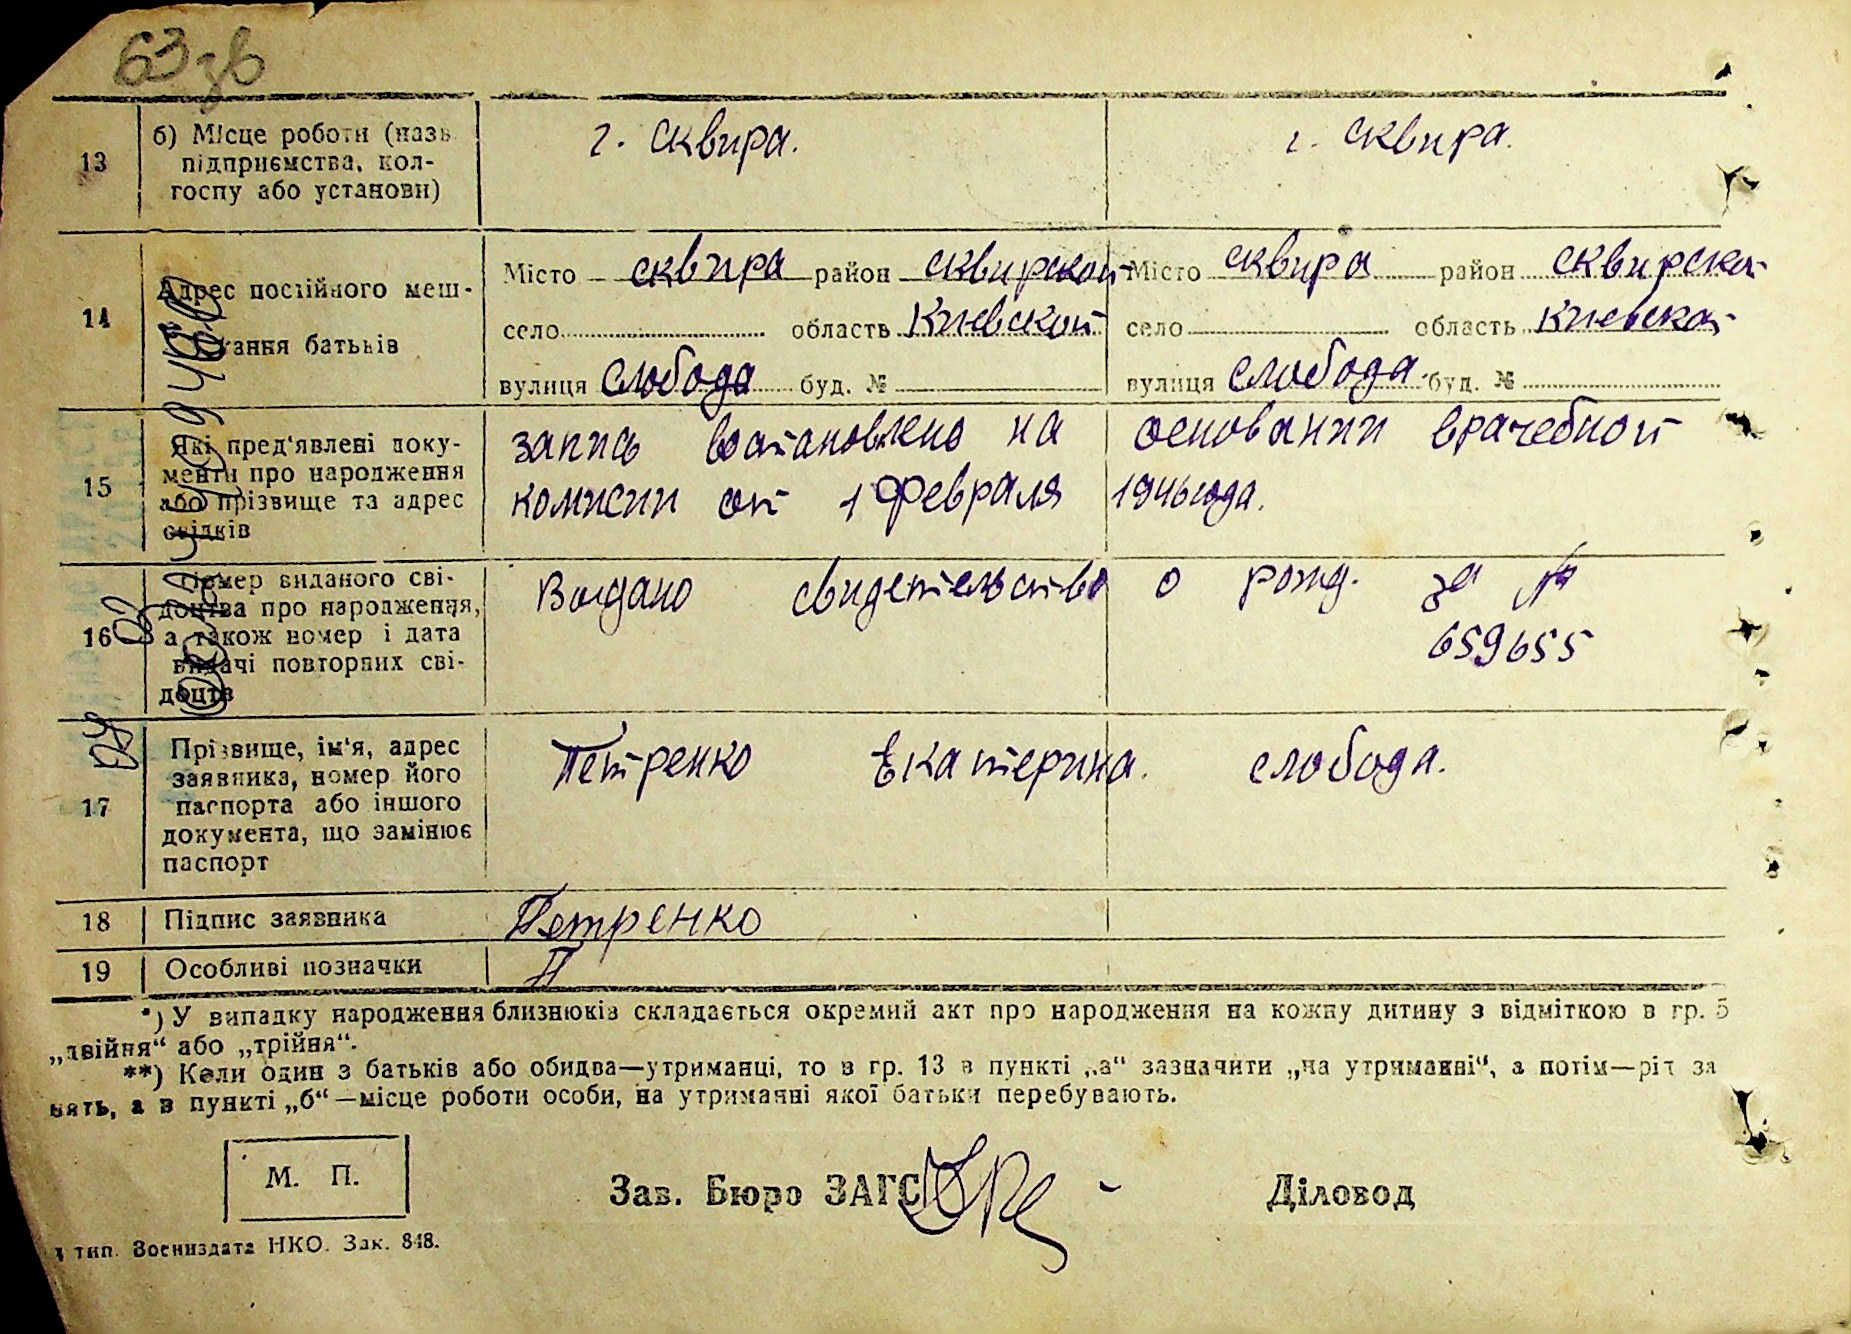 63зв
13 б) Місце роботи (назв г. сквира. г. сквира.
підприємства, кол-
госпу або установи)
14 Адрес постійного меш- Місто сквира район сквирской Місто сквира район сквирской
кання батьків село область Киевской село область Киевской
вулиця слобода буд. № вулиця слобода. буд. №
15 Які пред'явлені доку- запись востановлено на основании врачебной
менти про народження комисии от 1 февраля 1946 года.
або прізвище та адрес
свідків
16 Номер виданого сві- Выдано свидетельство о рожд. за №
доцтва про народження, 659655
а також номер і дата
видачі повторних сві-
доцтв
17 Прізвище, ім'я, адрес Петренко Екатерина. слобода.
заявника, номер його
паспорта або іншого
документа, що замінює
паспорт
18 Підпис заявника Петренко
19 Особливі позначки П
*) У випадку народження близнюків складається окремий акт про народження на кожну дитину з відміткою в гр. 5
„двійня“ або „трійня“.
**) Коли один з батьків або обидва—утриманці, то в гр. 13 в пункті „а“ зазначити „на утриманні“, а потім—рід за
нять, а в пункті „б“—місце роботи особи, на утриманні якої батьки перебувають.
М. П.
Зав. Бюро ЗАГС Діловод
тип. Воениздата НКО. Зак. 848.